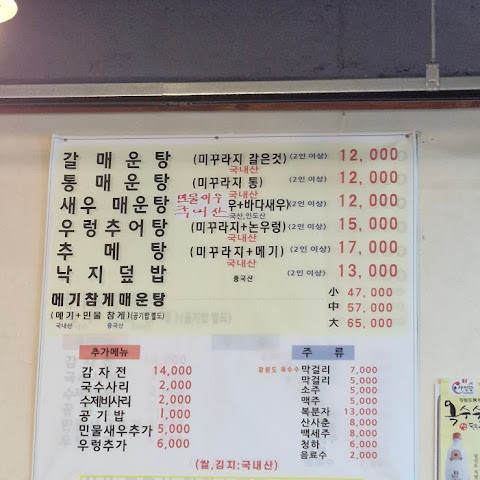 갈 매운탕 (미꾸라지 갈은것) (2인 이상) 12,000
국내산
통 매운탕 (미꾸라지 통) (2인 이상) 12,000
국내산
새우 매운탕 민물새우 우+바다새우) (2인 이상) 12,000
국내산 국산,인도산
우렁추어탕 (미꾸라지+논우렁) (2인 이상) 15,000
국내산
추 메 탕 (미꾸라지+메기) (2인 이상) 17,000
국내산
낙지덮밥 (2인 이상) 13,000
중국산
메기참게매운탕 小 47,000
(메기+민물 참게)(공기밥별도) 中 57,000
국내산 중국산 大 65,000
추가메뉴
감 자 전 14,000
국수사리 2,000
수제비사리 2,000
공 기 밥 1,000
민물새우추가 5,000
우렁추가 6,000
주 류
강원도 옥수수 막걸리 7,000
막걸리 5,000
소주 5,000
맥주 5,000
복분자 13,000
산사춘 8,000
백세주 8,000
청하 6,000
음료수 2,000
(쌀,김치:국내산)
옥수수